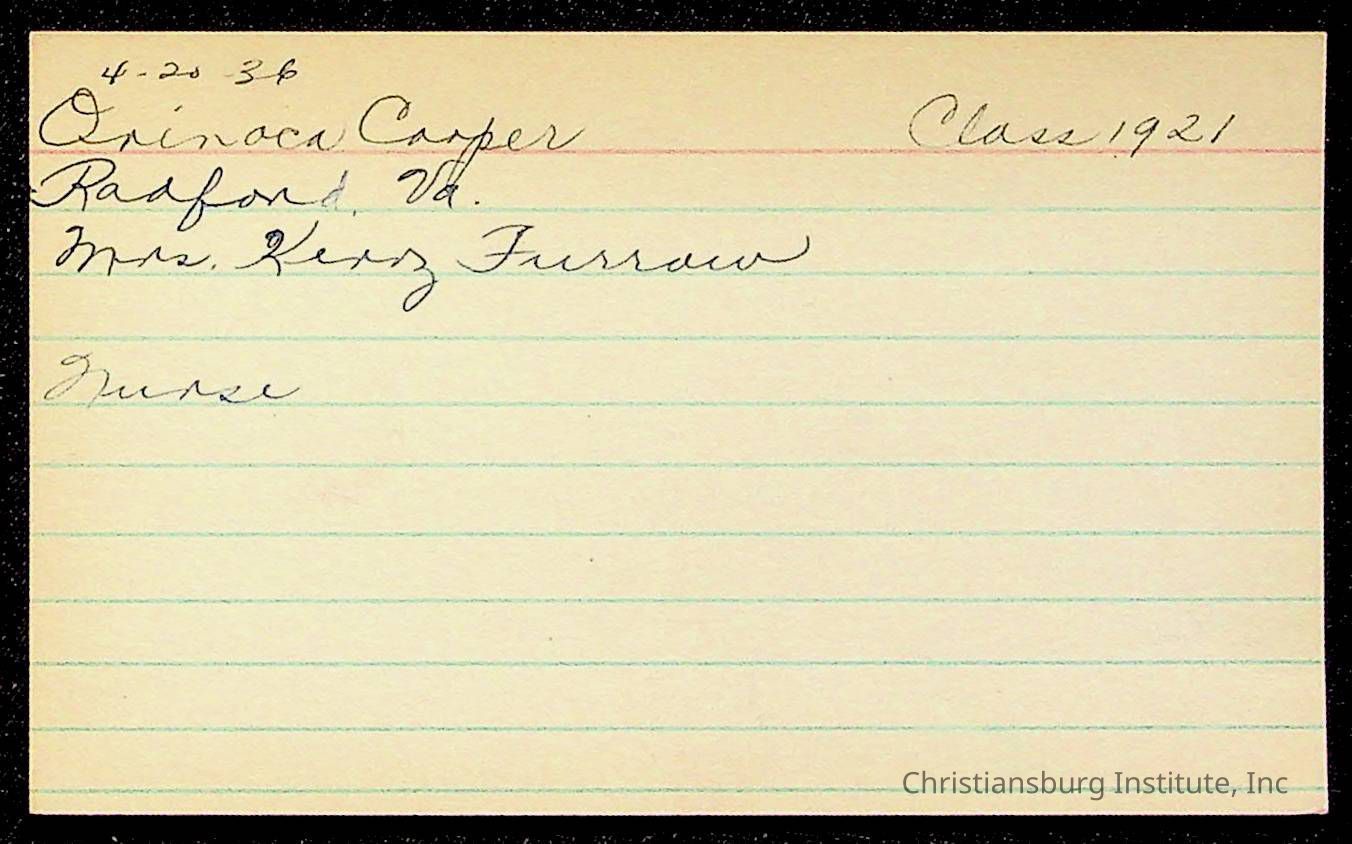 4-20 36
Orinoca Cooper Class 1921
Radford, Va.
Mrs. Kerry Furrow
Nurse
Christiansburg Institute, Inc